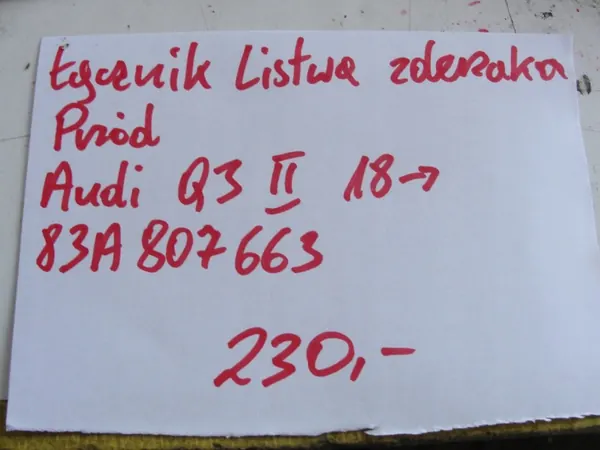 Łącznik Listwa zderzaka
Przód
Audi Q3 II 18→
83A 807 663
230,-